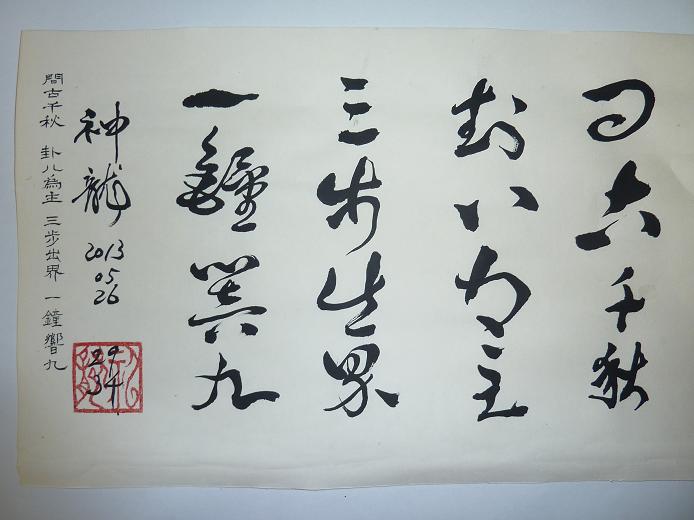 問古千秋
卦八為主
三步出界
一鐘響九
神龍
2013
05
26
問古千秋 卦八為主 三步出界 一鐘響九